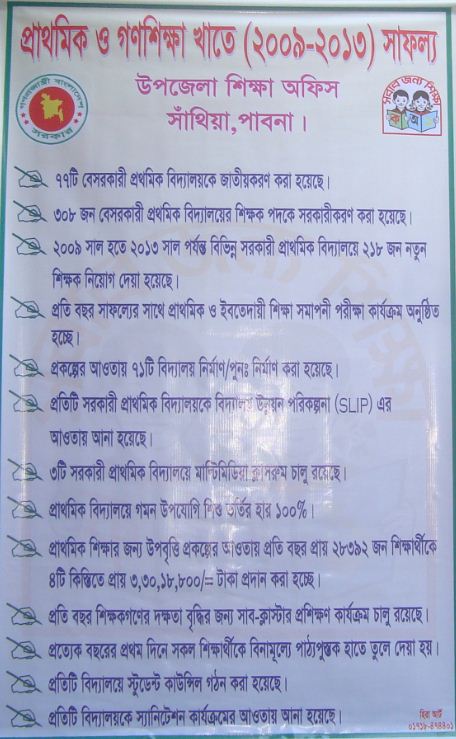 প্রাথমিক ও গণশিক্ষা খাতে (২০০৯-২০১৩) সাফল্য
উপজেলা শিক্ষা অফিস
সাঁথিয়া,পাবনা।
গণপ্রজাতন্ত্রী বাংলাদেশ
সরকার
সবার জন্য শিক্ষা
ক অ
৭৭টি বেসরকারী প্রাথমিক বিদ্যালয়কে জাতীয়করণ করা হয়েছে।
৩০৮ জন বেসরকারী প্রাথমিক বিদ্যালয়ের শিক্ষক পদকে সরকারীকরণ করা হয়েছে।
২০০৯ সাল হতে ২০১৩ সাল পর্যন্ত বিভিন্ন সরকারী প্রাথমিক বিদ্যালয়ে ২১৮ জন নতুন
শিক্ষক নিয়োগ দেয়া হয়েছে।
প্রতি বছর সাফল্যের সাথে প্রাথমিক ও ইবতেদায়ী শিক্ষা সমাপনী পরীক্ষা কার্যক্রম অনুষ্ঠিত
হচ্ছে।
প্রকল্পের আওতায় ৭১টি বিদ্যালয় নির্মাণ/পুনঃ নির্মাণ করা হয়েছে।
প্রতিটি সরকারী প্রাথমিক বিদ্যালয়কে বিদ্যালয় উন্নয়ন পরিকল্পনা (SLIP) এর
আওতায় আনা হয়েছে।
৩টি সরকারী প্রাথমিক বিদ্যালয়ে মাল্টিমিডিয়া ক্লাসরুম চালু রয়েছে।
প্রাথমিক বিদ্যালয়ে গমন উপযোগি শিশু ভর্তির হার ১০০%।
প্রাথমিক শিক্ষার জন্য উপবৃত্তি প্রকল্পের আওতায় প্রতি বছর প্রায় ২৮৩৯২ জন শিক্ষার্থীকে
৪টি কিস্তিতে প্রায় ৩,৩০,১৮,৮০০/= টাকা প্রদান করা হচ্ছে।
প্রতি বছর শিক্ষকগণের দক্ষতা বৃদ্ধির জন্য সাব-ক্লাস্টার প্রশিক্ষণ কার্যক্রম চালু রয়েছে।
প্রত্যেক বছরের প্রথম দিনে সকল শিক্ষার্থীকে বিনামূল্যে পাঠ্যপুস্তক হাতে তুলে দেয়া হয়।
প্রতিটি বিদ্যালয়ে স্টুডেন্ট কাউন্সিল গঠন করা হয়েছে।
প্রতিটি বিদ্যালয়কে স্যানিটেশন কার্যক্রমের আওতায় আনা হয়েছে।
হিরা আর্ট